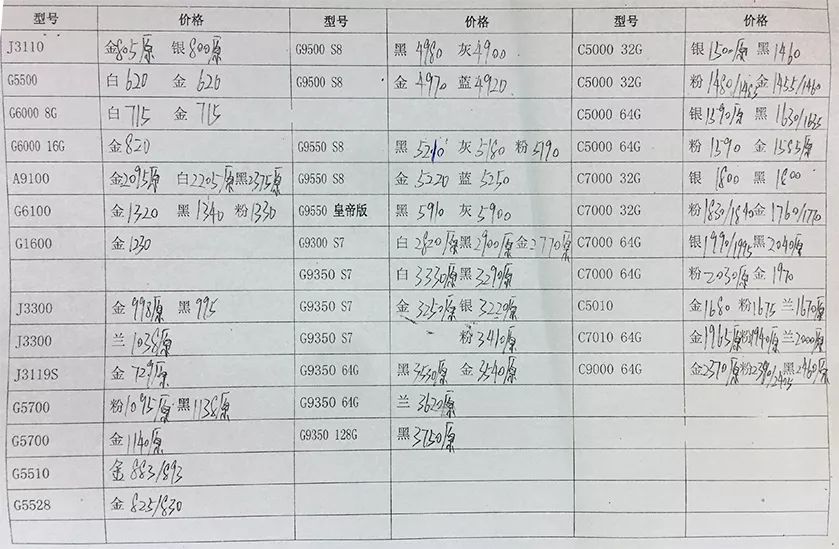 型号 价格 型号 价格 型号 价格
J3110 金805原 银800原 G9500 S8 黑 4980 灰4900 C5000 32G 银1500原 黑1460
G5500 白620 金 620 G9500 S8 金 4970 蓝4920 C5000 32G 粉1480/1485 金1455/1460
G6000 8G 白 715 金 715 C5000 64G 银1590原 黑 1630/1635
G6000 16G 金820 G9550 S8 黑 5210 灰5180 粉5190 C5000 64G 粉1590 金 1585原
A9100 金2095原 白2205原 黑2375原 G9550 S8 金 5220 蓝 5250 C7000 32G 银1800 黑1800
G6100 金1320 黑1340 粉1330 G9550 皇帝版 黑 5910 灰5900 C7000 32G 粉1830/1840 金1760/1770
G1600 金1230 G9300 S7 白2820原 黑2900原 金2770原 C7000 64G 银1990/1995 黑2040原
G9350 S7 白 3330原 黑3290原 C7000 64G 粉2030原 金 1970
J3300 金 998原 黑995 G9350 S7 金 3250原 银3220原 C5010 金1680 粉1675 兰1670原
J3300 兰1038原 G9350 S7 粉3410原 C7010 64G 金1965原 粉1940原 兰2000原
J3119S 金729原 G9350 64G 黑3530原 金3540原 C9000 64G 金2370原 粉2390/2405 黑2460原
G5700 粉1095原 黑1138原 G9350 64G 兰 3620原
G5700 金1140原 G9350 128G 黑3750原
G5510 金 883/893
G5528 金 825/830